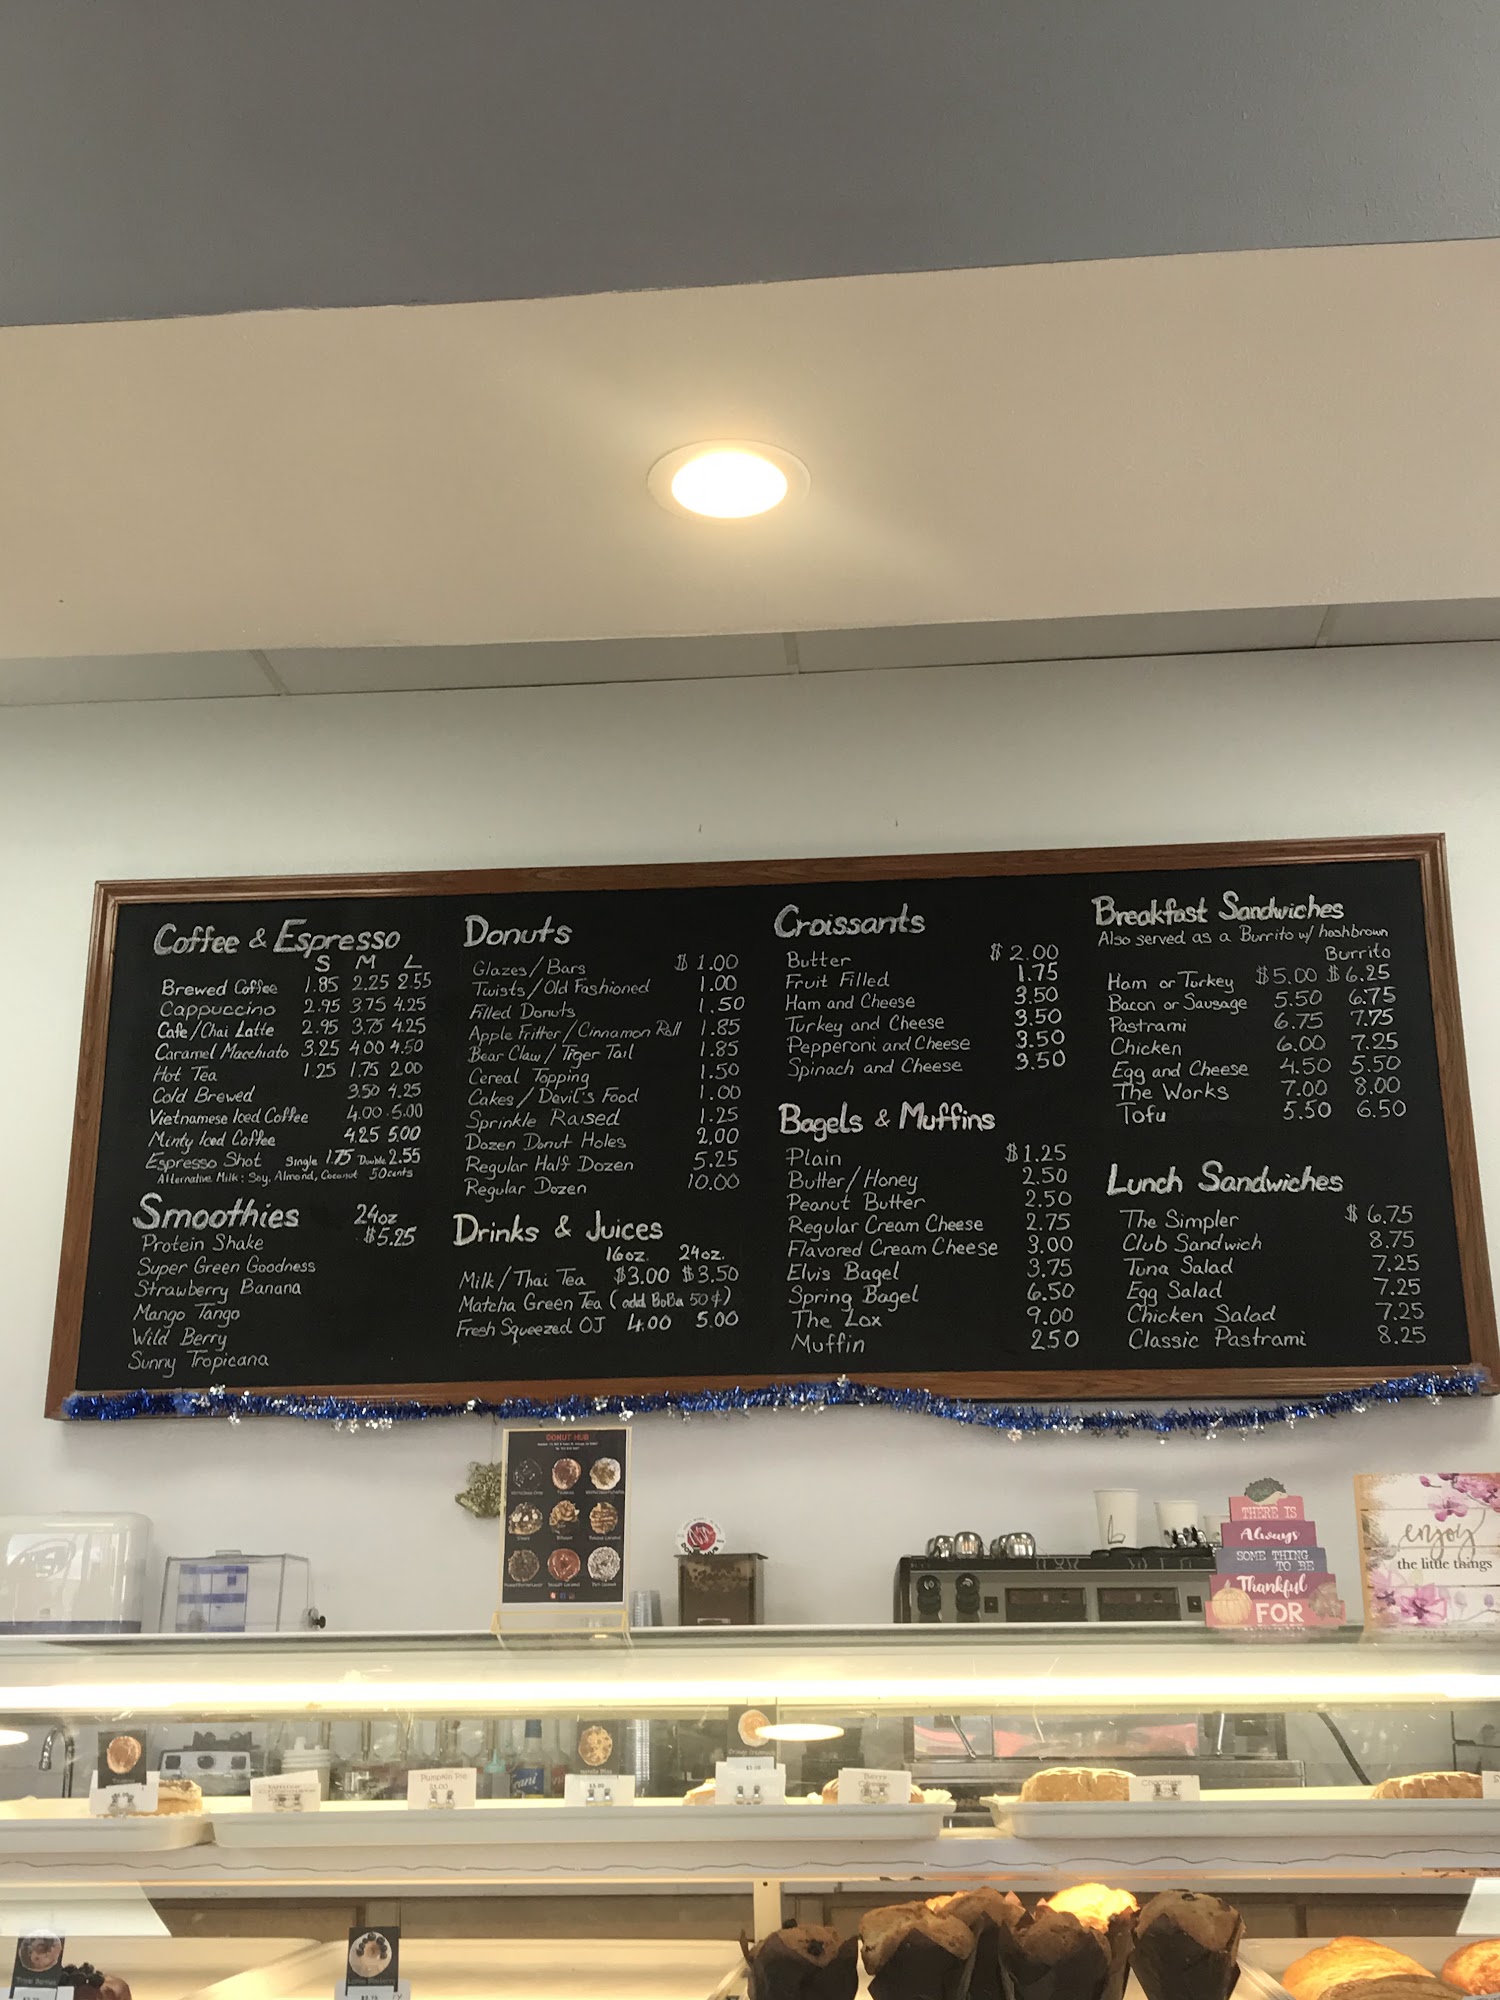 Coffee & Espresso
S M L
Brewed Coffee 1.85 2.25 2.55
Cappuccino 2.95 3.75 4.25
Cafe/Chai Latte 2.95 3.75 4.25
Caramel Macchiato 3.25 4.00 4.50
Hot Tea 1.25 1.75 2.00
Cold Brewed 3.50 4.25
Vietnamese Iced Coffee 4.00 5.00
Minty Iced Coffee 4.25 5.00
Espresso Shot Single 1.75 Double 2.55
Alternative Milk: Soy, Almond, Coconut 50cents
Smoothies 24oz
Protein Shake $5.25
Super Green Goodness
Strawberry Banana
Mango Tango
Wild Berry
Sunny Tropicana
Donuts
Glazes/Bars $ 1.00
Twists/Old Fashioned 1.00
Filled Donuts 1.50
Apple Fritter/Cinnamon Roll 1.85
Bear Claw/Tiger Tail 1.85
Cereal Topping 1.50
Cakes/Devil's Food 1.00
Sprinkle Raised 1.25
Dozen Donut Holes 2.00
Regular Half Dozen 5.25
Regular Dozen 10.00
Drinks & Juices
16oz. 24oz.
Milk/Thai Tea $3.00 $3.50
Matcha Green Tea (add BoBa 50¢)
Fresh Squeezed OJ 4.00 5.00
Croissants
Butter $ 2.00
Fruit Filled 1.75
Ham and Cheese 3.50
Turkey and Cheese 3.50
Pepperoni and Cheese 3.50
Spinach and Cheese 3.50
Bagels & Muffins
Plain $1.25
Butter/Honey 2.50
Peanut Butter 2.50
Regular Cream Cheese 2.75
Flavored Cream Cheese 3.00
Elvis Bagel 3.75
Spring Bagel 6.50
The Lox 9.00
Muffin 2.50
Breakfast Sandwiches
Also served as a Burrito w/ hashbrown
Burrito
Ham or Turkey $5.00 $6.25
Bacon or Sausage 5.50 6.75
Pastrami 6.75 7.75
Chicken 6.00 7.25
Egg and Cheese 4.50 5.50
The Works 7.00 8.00
Tofu 5.50 6.50
Lunch Sandwiches
The Simpler $ 6.75
Club Sandwich 8.75
Tuna Salad 7.25
Egg Salad 7.25
Chicken Salad 7.25
Classic Pastrami 8.25
DONUT HUB
L
THERE IS
Always
SOME THING
TO BE
Thankful
FOR
enjoy
the little things
Pumpkin Pie
$3.00
Berry